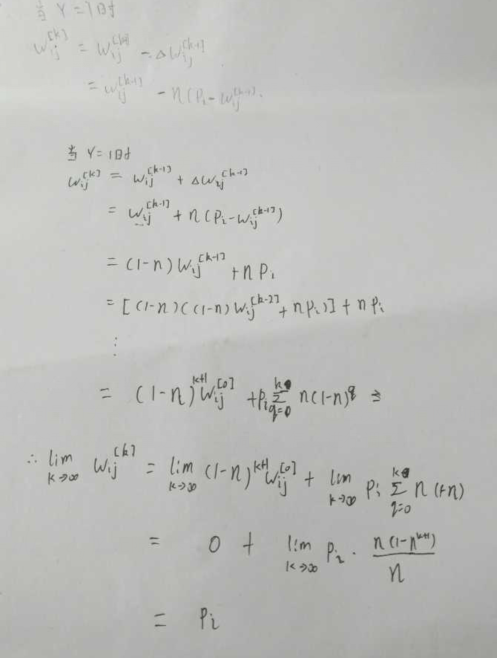 当 Y=1时
w_ij^[k] = w_ij^[k-1] - Δw_ij^[k-1]
= w_ij^[k-1] - n(P_i-w_ij^[k-1]).
当 Y=1时
w_ij^[k] = w_ij^[k-1] + Δw_ij^[k-1]
= w_ij^[k-1] + n(P_i-w_ij^[k-1])
= (1-n)w_ij^[k-1] + nP_i
= [(1-n)((1-n)w_ij^[k-2] + nP_i)] + nP_i
⋮
= (1-n)^k+1 w_ij^[0] + P_i Σ_q=0^k n(1-n)^q
∴ lim_k→∞ w_ij^[k] = lim_k→∞ (1-n)^k+1 w_ij^[0] + lim_k→∞ P_i Σ_q=0^k n(1-n)
= 0 + lim_k→∞ P_i · n(1-n^k+1)/n
= P_i